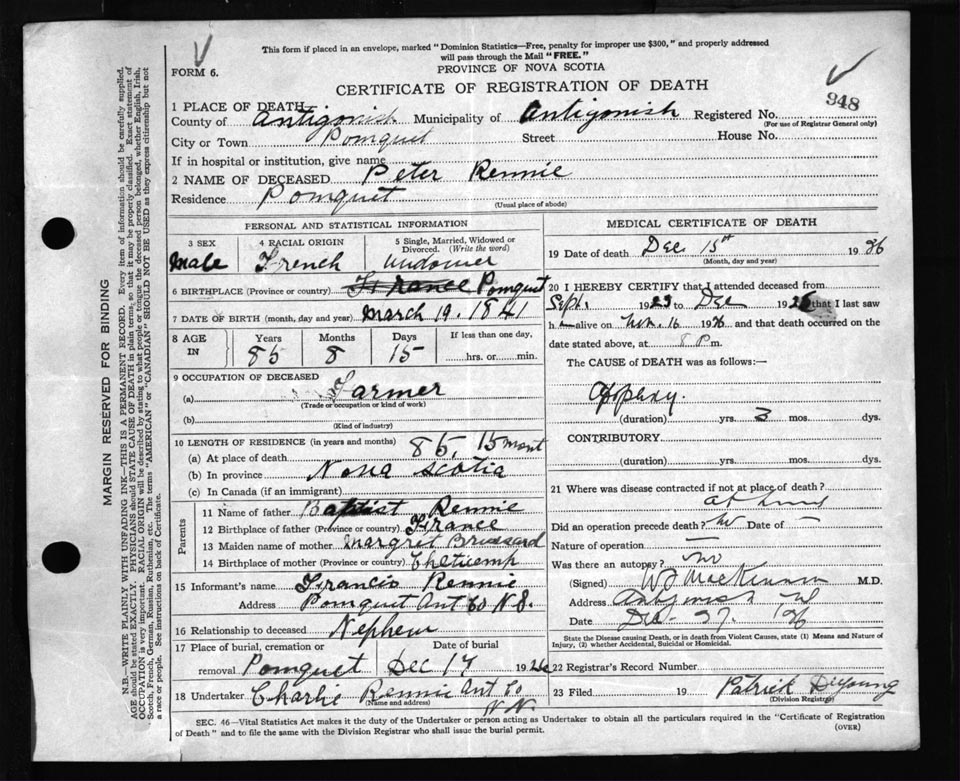 This form if placed in an envelope, marked "Dominion Statistics—Free, penalty for improper use $300," and properly addressed
will pass through the Mail "FREE."
FORM 6.
PROVINCE OF NOVA SCOTIA
CERTIFICATE OF REGISTRATION OF DEATH
948
1 PLACE OF DEATH
County of Antigonish Municipality of Antigonish Registered No.
(For use of Registrar General only)
City or Town Pomquet Street House No.
If in hospital or institution, give name
2 NAME OF DECEASED Peter Rennie
Residence Pomquet
(Usual place of abode)
PERSONAL AND STATISTICAL INFORMATION
3 SEX 4 RACIAL ORIGIN 5 Single, Married, Widowed or
Divorced. (Write the word)
Male French Widower
6 BIRTHPLACE (Province or country) France Pomquet
7 DATE OF BIRTH (month, day and year) March 19. 1841
8 AGE IN Years Months Days If less than one day,
85 8 15 hrs. or min.
9 OCCUPATION OF DECEASED
(a) Farmer
(Trade or occupation or kind of work)
(b)
(Kind of industry)
10 LENGTH OF RESIDENCE (in years and months)
(a) At place of death 85, 15 mont
(b) In province Nova Scotia
(c) In Canada (if an immigrant)
Parents
11 Name of father Baptist Rennie
12 Birthplace of father (Province or country) France
13 Maiden name of mother Margrit
14 Birthplace of mother (Province or country)
15 Informant's name Francis Rennie
Address Pomquet Ant Co N S.
16 Relationship to deceased Nephew
17 Place of burial, cremation or Date of burial
removal Pomquet Dec 17 1926
18 Undertaker Charlie Rennie Ant Co
(Name and address)
MEDICAL CERTIFICATE OF DEATH
19 Date of death Dec 15th 1926
(Month, day and year)
20 I HEREBY CERTIFY that I attended deceased from
Sept 1923 to Dec 1926 that I last saw
h alive on Nov. 16 1926 and that death occurred on the
date stated above, at 8 P m.
The CAUSE of DEATH was as follows:—
(duration) yrs. 3 mos. dys.
CONTRIBUTORY
(duration) yrs. mos. dys.
21 Where was disease contracted if not at place of death?
at home
Did an operation precede death? No Date of —
Nature of operation —
Was there an autopsy? no
(Signed) W J MacKinnon M.D.
Address Antigonish
Date Dec. 27. 26
State the Disease causing Death, or in death from Violent Causes, state (1) Means and Nature
of Injury, (2) whether Accidental, Suicidal or Homicidal.
22 Registrar's Record Number
23 Filed 19 Patrick DeYoung
(Division Registrar)
SEC. 46—Vital Statistics Act makes it the duty of the Undertaker or person acting as Undertaker to obtain all the particulars required in the "Certificate of Registration
of Death" and to file the same with the Division Registrar who shall issue the burial permit.
(OVER)
MARGIN RESERVED FOR BINDING
N.B.—WRITE PLAINLY WITH UNFADING INK—THIS IS A PERMANENT RECORD. Every item of information should be carefully supplied.
AGE should be stated EXACTLY. PHYSICIANS should STATE CAUSE OF DEATH in plain terms, so that it may be properly classified. Exact statement of
OCCUPATION is very important. RACIAL ORIGIN will be described by stating to what people or tongue the deceased person belonged, whether English, Irish,
Scotch, French, German, Russian, Ruthenian, etc. The terms "AMERICAN" or "CANADIAN" SHOULD NOT BE USED as they express citizenship but not
a race or people. See instructions on back of Certificate.